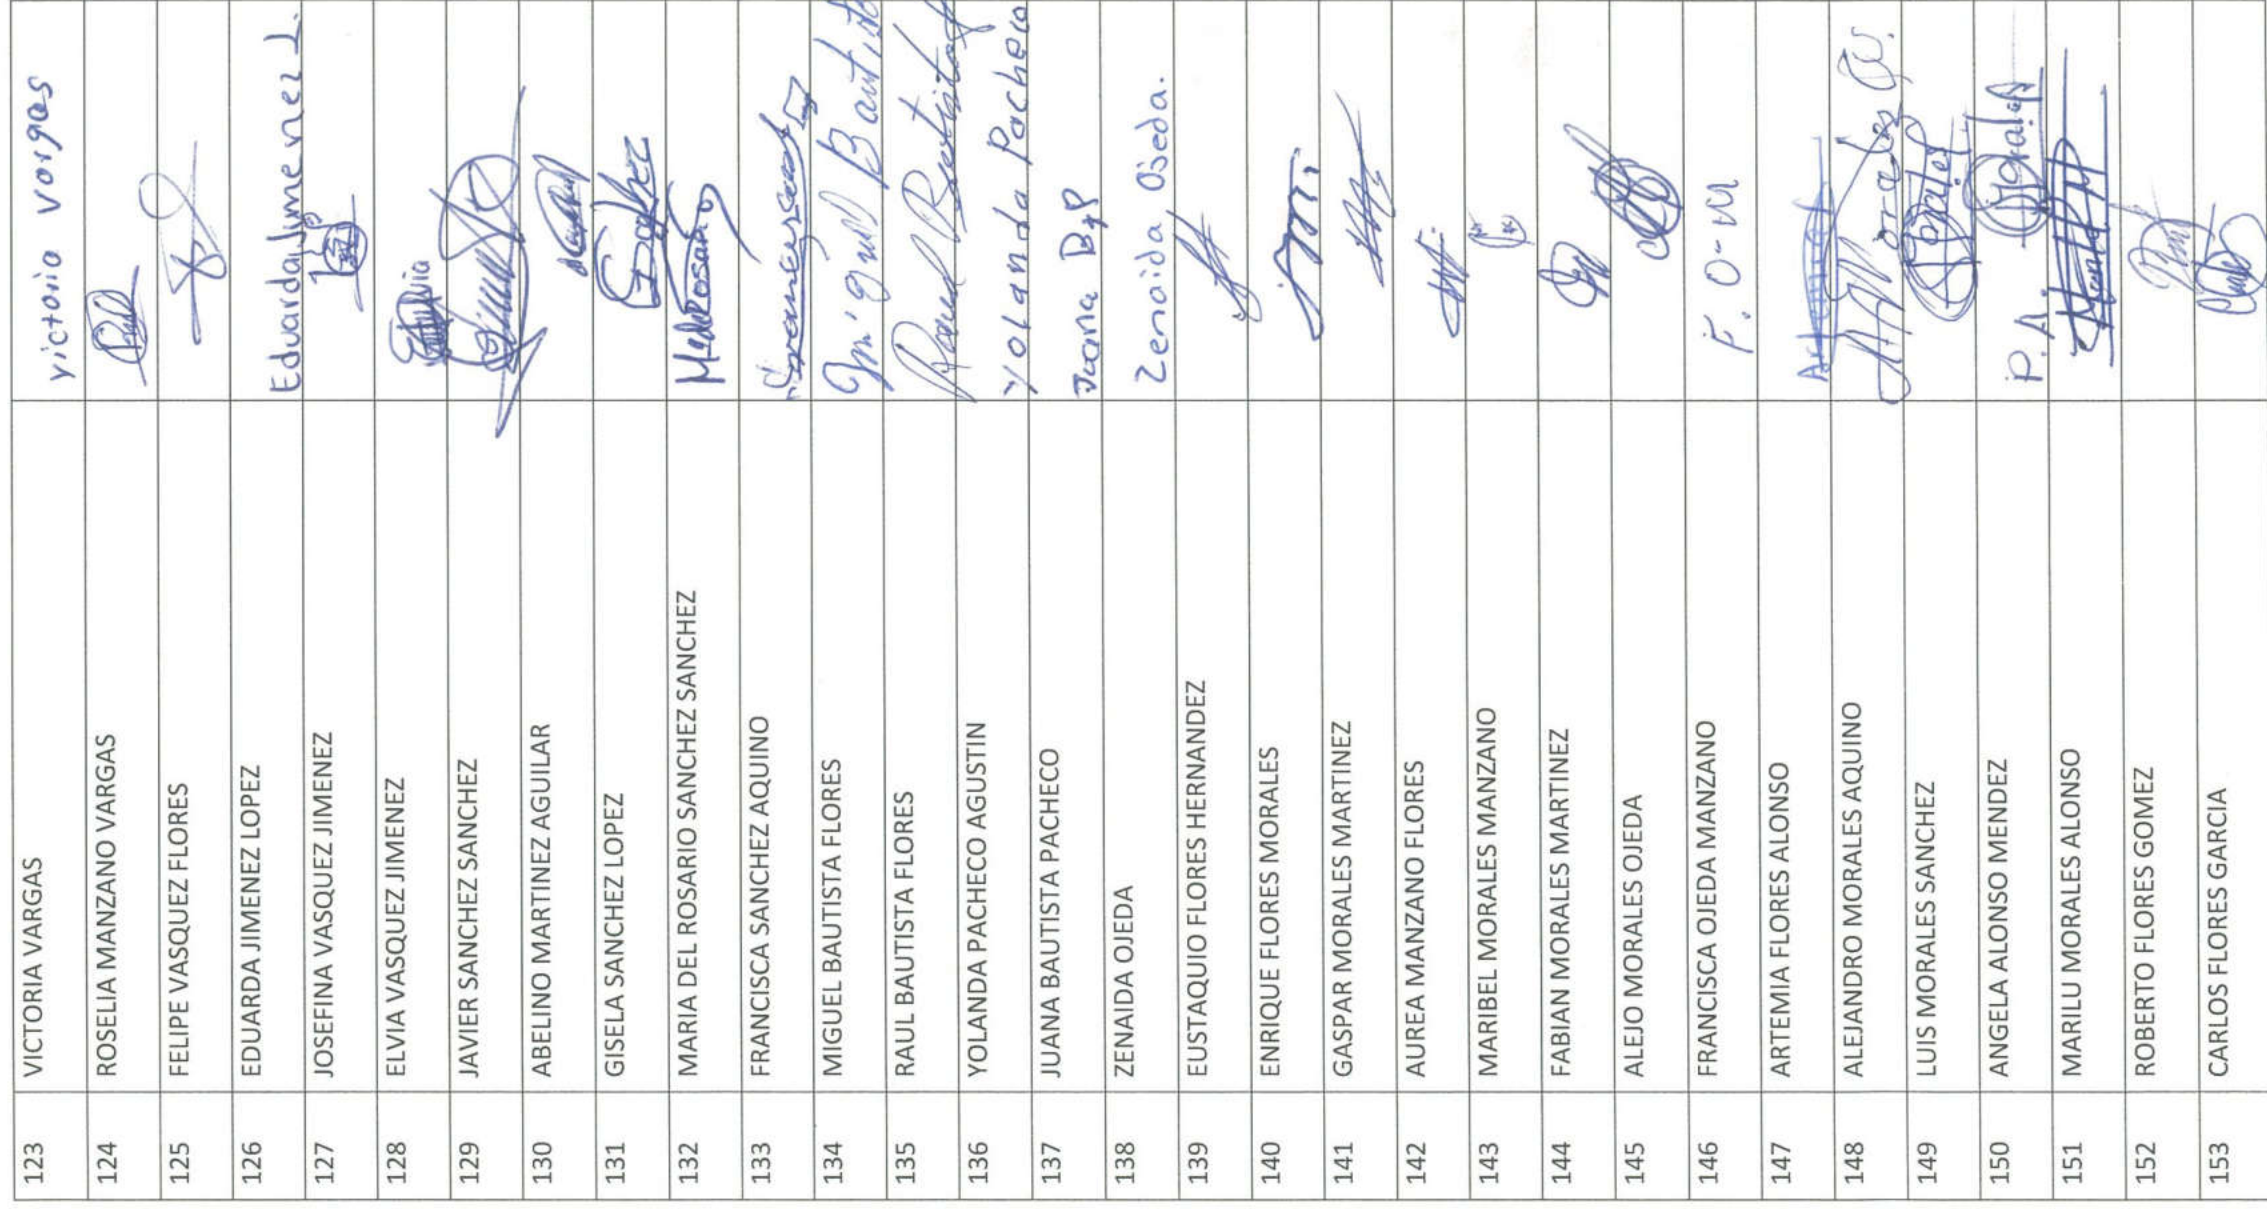 123 VICTORIA VARGAS victoria vargas
124 ROSELIA MANZANO VARGAS
125 FELIPE VASQUEZ FLORES
126 EDUARDA JIMENEZ LOPEZ Eduarda Jimenez L
127 JOSEFINA VASQUEZ JIMENEZ
128 ELVIA VASQUEZ JIMENEZ
129 JAVIER SANCHEZ SANCHEZ
130 ABELINO MARTINEZ AGUILAR
131 GISELA SANCHEZ LOPEZ
132 MARIA DEL ROSARIO SANCHEZ SANCHEZ
133 FRANCISCA SANCHEZ AQUINO
134 MIGUEL BAUTISTA FLORES Bautista
135 RAUL BAUTISTA FLORES
136 YOLANDA PACHECO AGUSTIN Yolanda Pacheco
137 JUANA BAUTISTA PACHECO Juana
138 ZENAIDA OJEDA Zenaida Ojeda.
139 EUSTAQUIO FLORES HERNANDEZ
140 ENRIQUE FLORES MORALES
141 GASPAR MORALES MARTINEZ
142 AUREA MANZANO FLORES
143 MARIBEL MORALES MANZANO
144 FABIAN MORALES MARTINEZ
145 ALEJO MORALES OJEDA
146 FRANCISCA OJEDA MANZANO F. O-M
147 ARTEMIA FLORES ALONSO
148 ALEJANDRO MORALES AQUINO
149 LUIS MORALES SANCHEZ
150 ANGELA ALONSO MENDEZ P.A.
151 MARILU MORALES ALONSO
152 ROBERTO FLORES GOMEZ
153 CARLOS FLORES GARCIA